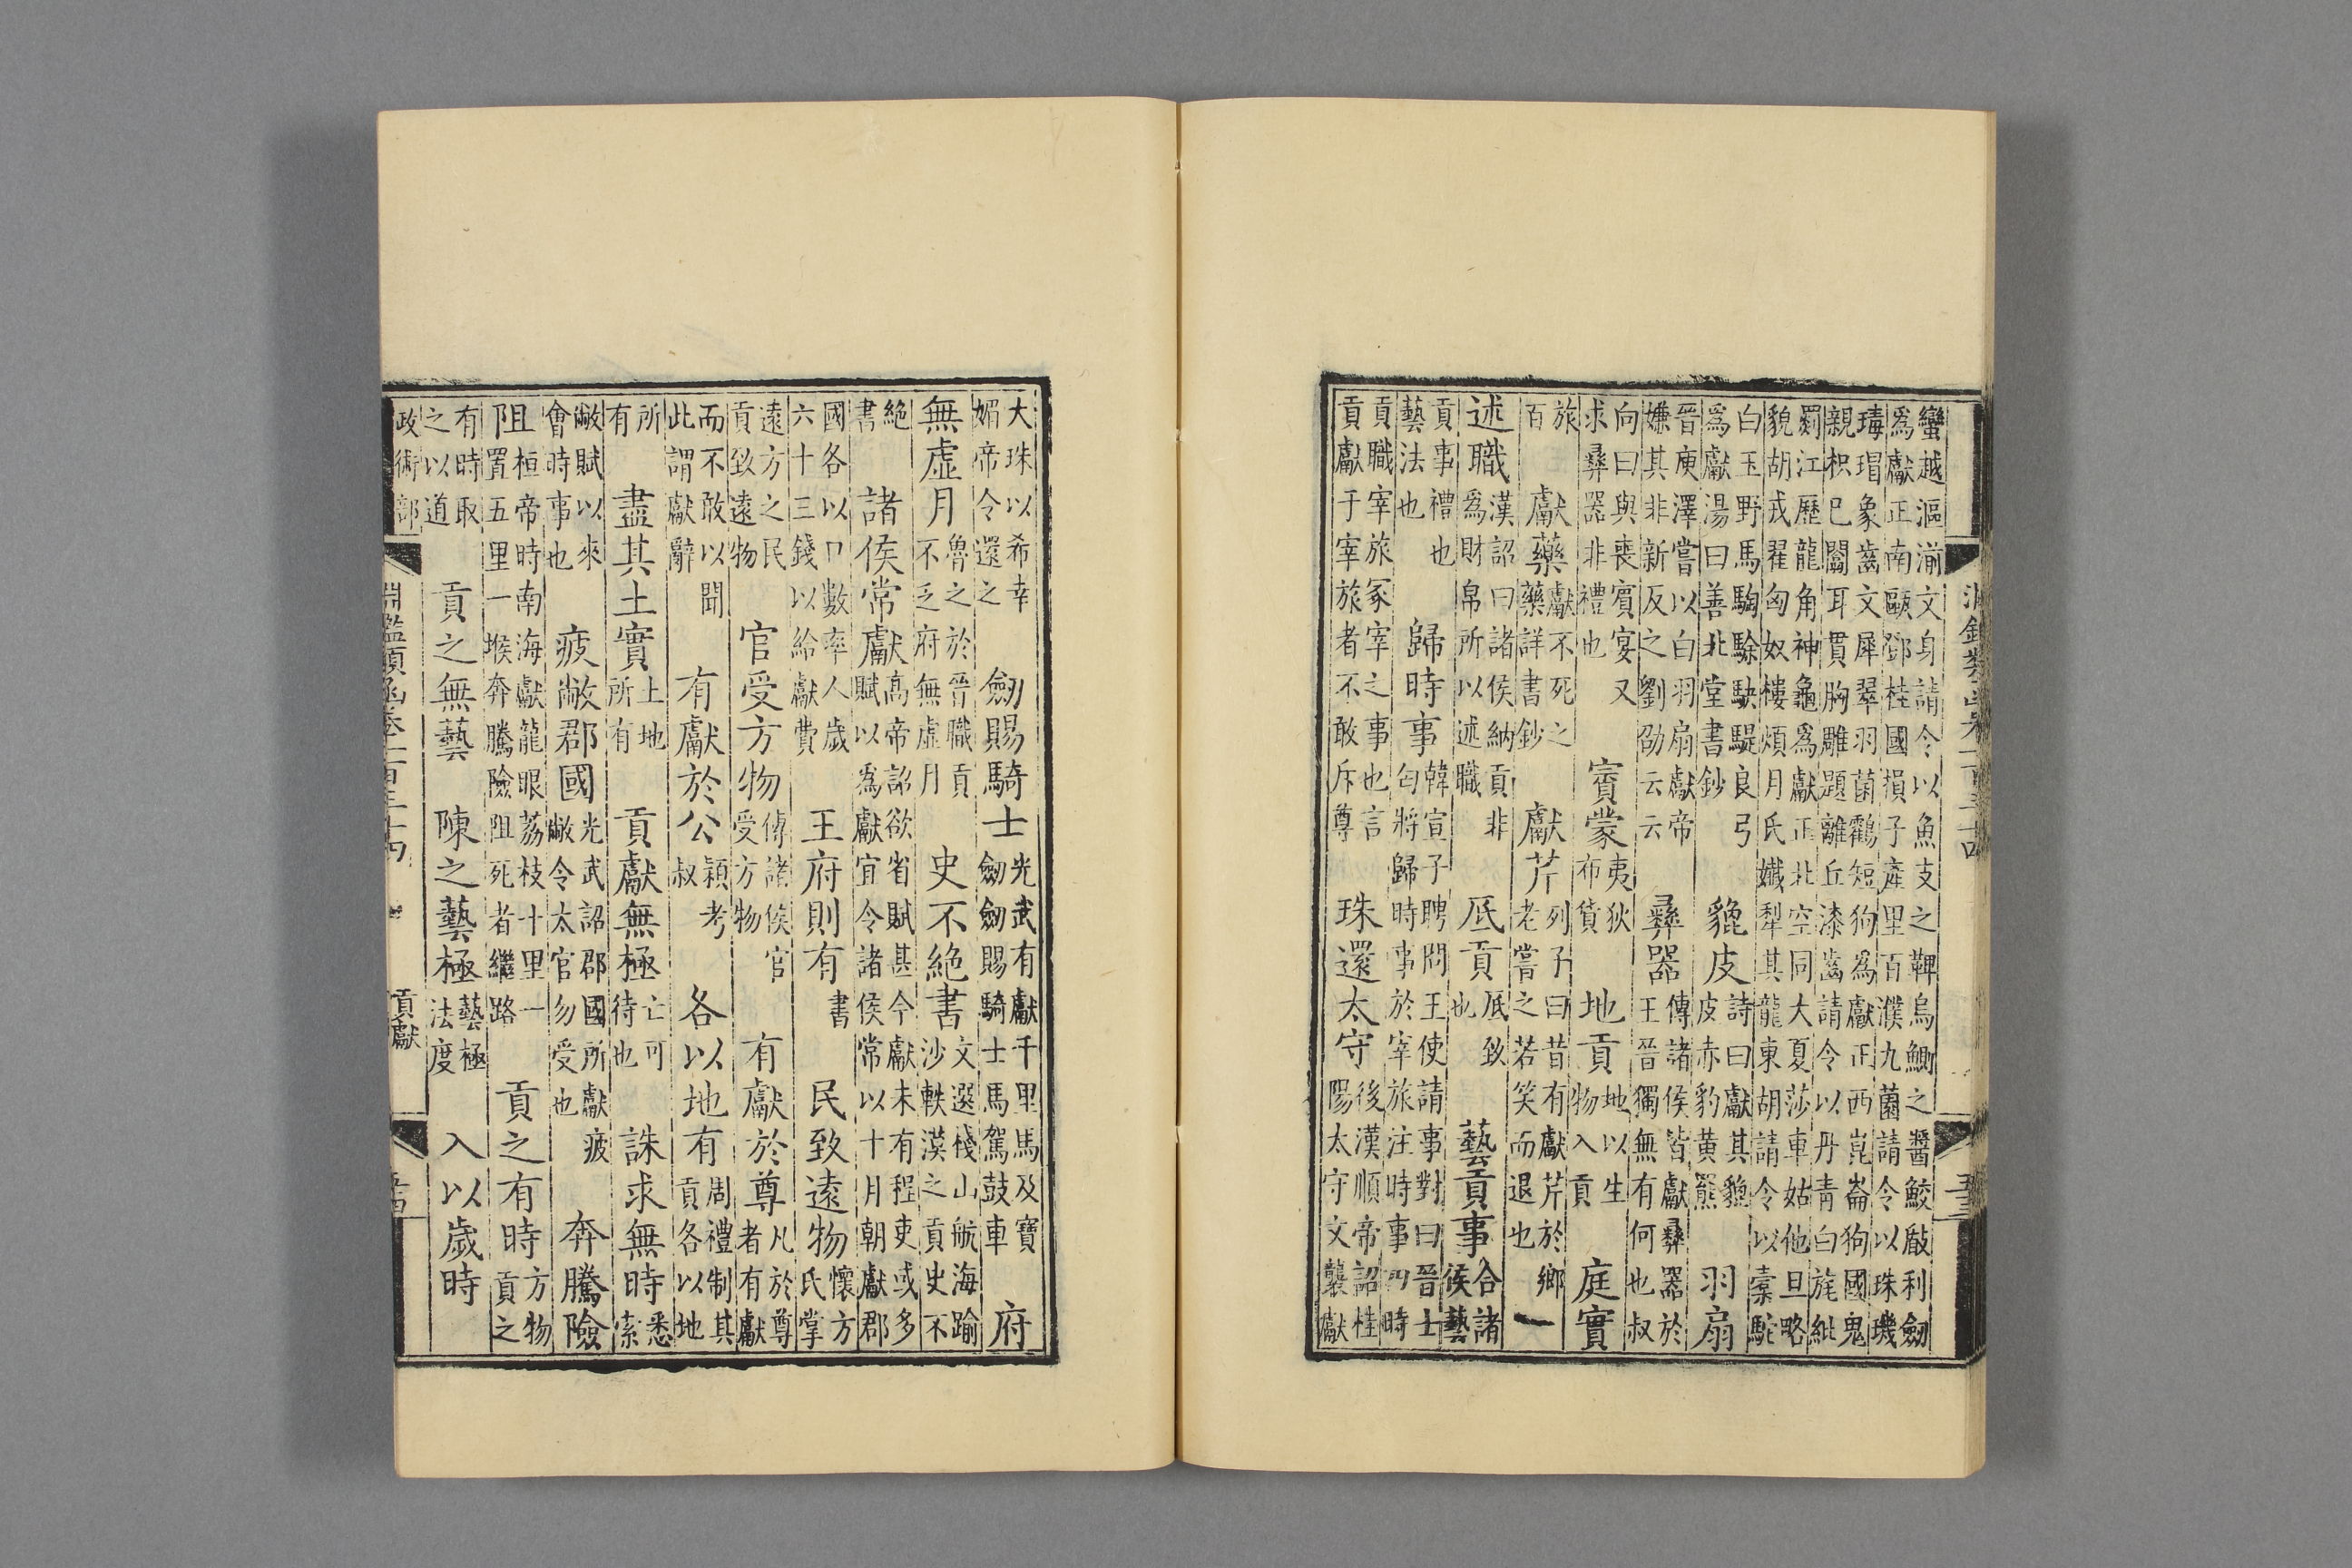 淵鑑類函卷一百三十四
蠻越漚湔文身請令以魚支之鞞烏鰂之醬鮫瞂利劒
為獻正南甌鄧桂國損子產里百濮九菌請令以珠璣
瑇瑁象齒文犀翠羽菌鶴短狗為獻正西崑崙狗國鬼
親枳巳闟耳貫胸雕題離丘漆齒請令以丹青白旄紕
罽江歷龍角神龜為獻正北空同大夏莎車姑他旦略
貌胡戎翟匈奴樓煩月氏孅犁其龍東胡請令以橐駝
白玉野馬騊駼駃騠良弓為獻湯曰善北堂書鈔 貔皮詩曰獻其貔皮赤豹黃羆 羽扇
晉庾澤嘗以白羽扇獻帝嫌其非新反之劉劭云云 彝器傳諸侯皆獻彝器於王晉獨無有何也叔
向曰與喪賓宴又求彝器非禮也 賓蒙夷狄布貨 地貢地以生物入貢 庭實
旅百 獻藥獻不死之藥詳書鈔 獻芹列子曰昔有獻芹於鄉老嘗之若笑而退也 一
述職漢詔曰諸侯納貢非為財帛所以述職 厎貢厎致也 藝貢事合諸侯藝
貢事禮也藝法也 歸時事韓宣子聘問王使請事對曰晉士匄將歸時事於宰旅注時事四時
貢職宰旅冢宰之事也言貢獻于宰旅者不敢斥尊 珠還太守後漢順帝詔桂陽太守文礱獻
大珠以希幸媚帝令還之 劒賜騎士光武有獻千里馬及寶劒劒賜騎士馬駕鼓車 府
無虛月魯之於晉職貢不乏府無虛月 史不絕書文選棧山航海踰沙軼漠之貢史不
絕書 諸侯常獻高帝詔欲省賦甚今獻未有程吏或多賦以為獻宜令諸侯常以十月朝獻郡
國各以口數率人歲六十三錢以給獻費 王府則有書 民致遠物懷方氏掌
遠方之民貢致遠物 官受方物傳諸侯官受方物 有獻於尊凡於尊者有獻
而不敢以聞此謂獻辭 有獻於公潁考叔 各以地有周禮制其貢各以地
所有 盡其土實土地所有 貢獻無極亡可待也 誅求無時悉索
敝賦以來會時事也 疲敝郡國光武詔郡國所獻疲敝令太官勿受也 奔騰險
阻桓帝時南海獻龍眼荔枝十里一置五里一堠奔騰險阻死者繼路 貢之有時方物貢之
有時取之以道 貢之無藝 陳之藝極藝極法度 入以歲時
政術部 淵鑑類函卷一百三十四 貢獻